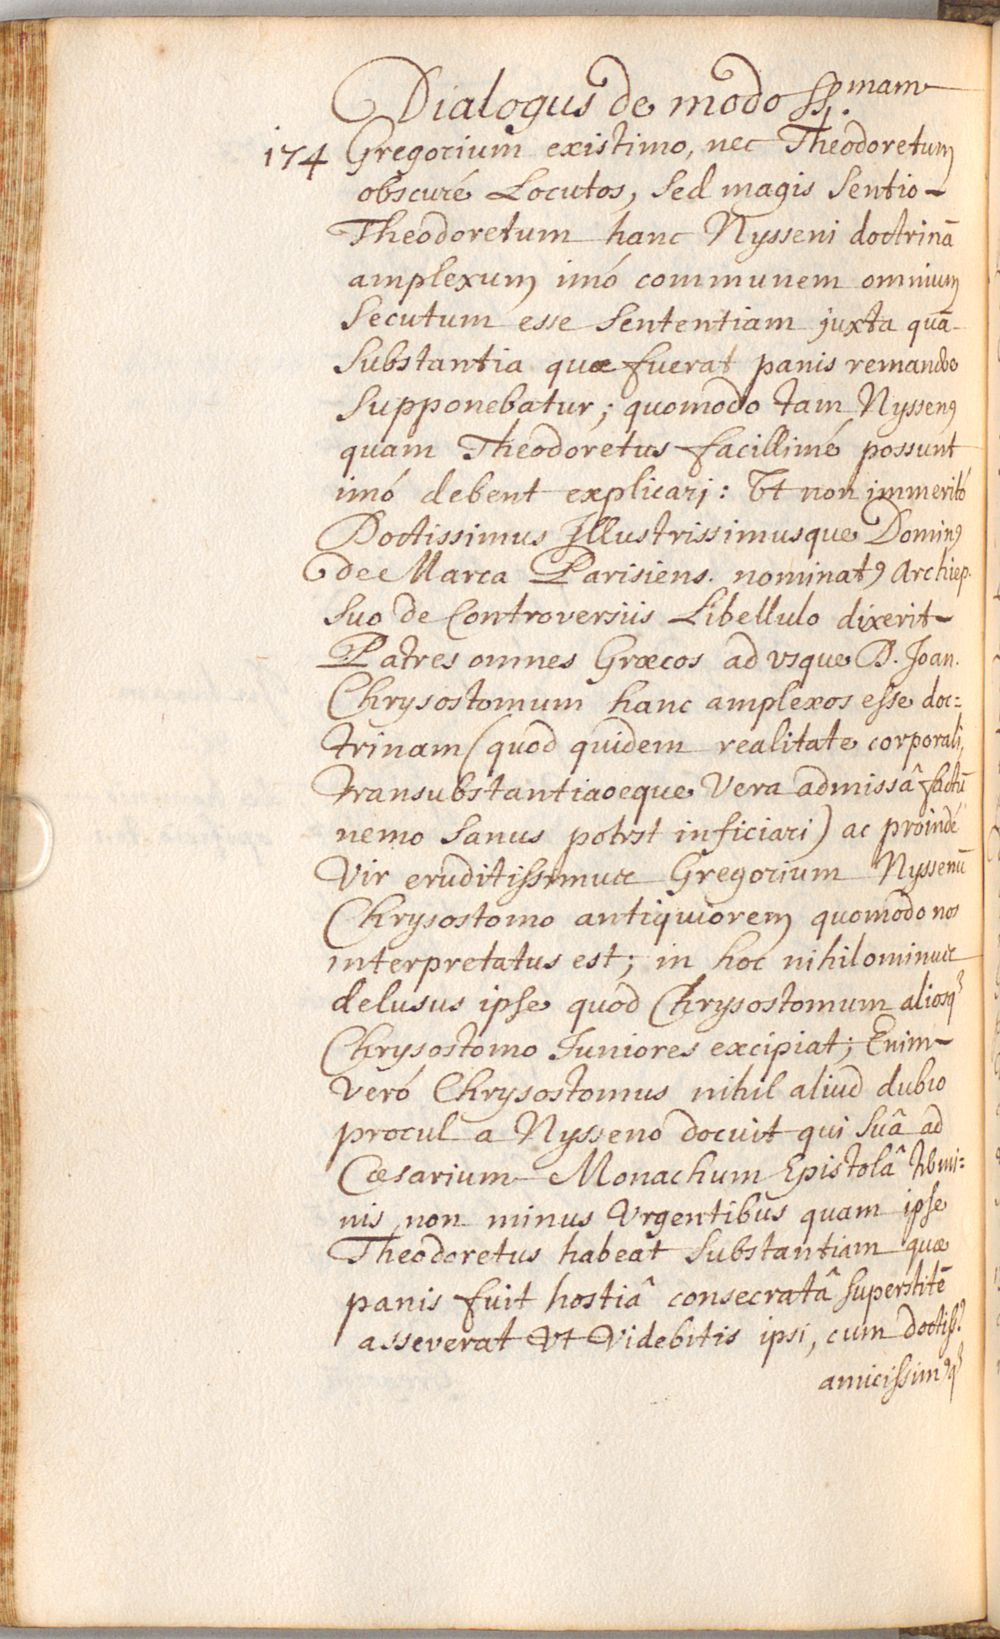 Dialogus de modo SS.mam
174 Gregorium existimo, nec Theodoretum
obscuré Locutos, Sed magis Sentio-
Theodoretum hanc Nysseni doctrinā
amplexum imó communem omnium
Secutum esse Sententiam juxta quā-
Substantia quæ fuerat panis remando
Supponebatur; quomodo tam Nyssenꝯ
quam Theodoretus facillimé possunt
imó debent explicari: Vt non immeritó
Doctissimus Illustrissimusque Dominꝯ
de Marca Parisiens. nominatꝯ Archiep.
Suo de Controversiis Libellulo dixerit-
Patres omnes Græcos ad vsque D. Joan.
Chrysostomum hanc amplexos esse doc=
trinam (quod quidem realitate corporali,
transubstantiaoeque Vera admissâ factū
nemo Sanus potest inficiari) ac proindé
Vir eruditissimus Gregorium Nyssenū
Chrysostomo antiquiorem quomodo nos
interpretatus est; in hoc nihilominus
delusus ipse quod Chrysostomum aliosq'
Chrysostomo Juniores excipiat; Enim-
Veró Chrysostomus nihil aliud dubio
procul a Nysseno docuit qui Suâ ad
Cæsarium Monachum Epistolâ termi=
nis non minus Vrgentibus quam ipse
Theodoretus habeat Substantiam quæ
panis fuit hostiâ consecratâ Superstitē
asseverat Vt Videbitis ipsi, cum doctiss.'
amicissimꝯq'